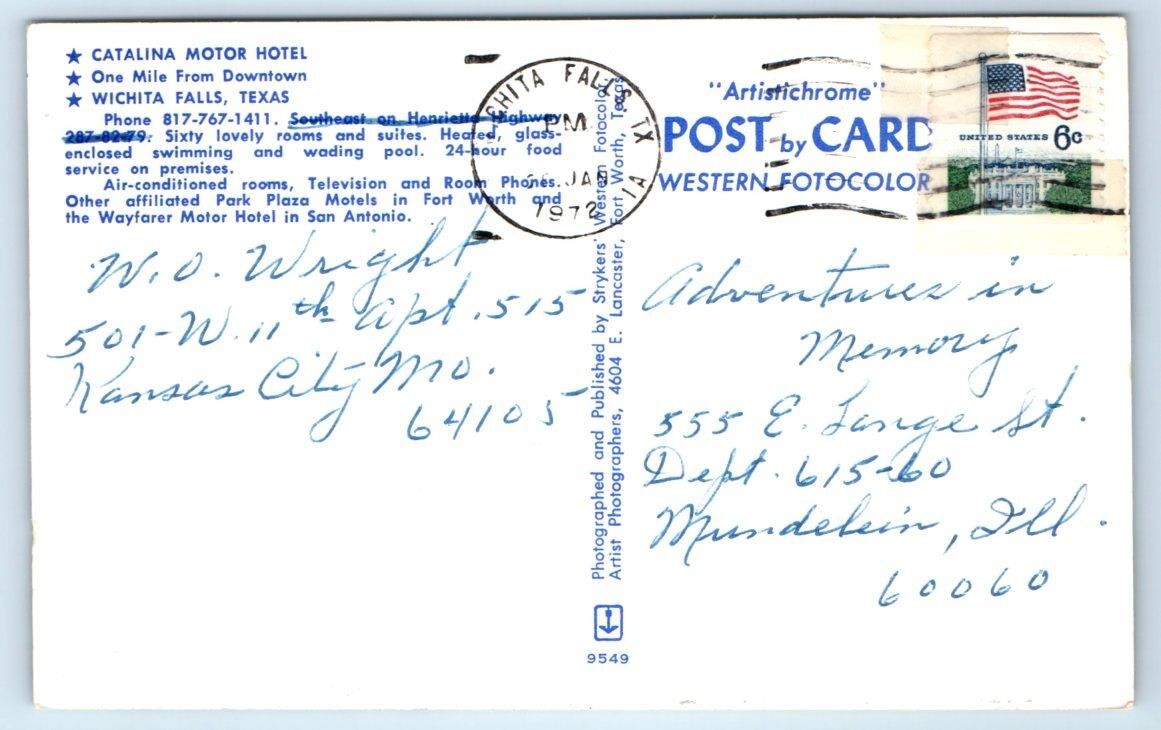 ★ CATALINA MOTOR HOTEL
★ One Mile From Downtown
★ WICHITA FALLS, TEXAS
Phone 817-767-1411. Southeast on Henrietta Highway
287-82-79. Sixty lovely rooms and suites. Heated, glass-
enclosed swimming and wading pool. 24-hour food
service on premises.
Air-conditioned rooms, Television and Room Phones.
Other affiliated Park Plaza Motels in Fort Worth and
the Wayfarer Motor Hotel in San Antonio.
W.O. Wright
501-W. 11th Apt. 515
Kansas City Mo.
64105
CHITA FALLS, TX
PM
JAN
1972
Photographed and Published by Strykers' Western Fotocolor
Artist Photographers, 4604 E. Lancaster, Fort Worth, Texas
9549
"Artistichrome"
POST by CARD
WESTERN FOTOCOLOR
UNITED STATES 6c
Adventures in
Memory
555 E. Lange St.
Dept. 615-60
Mundelein, Ill.
60060